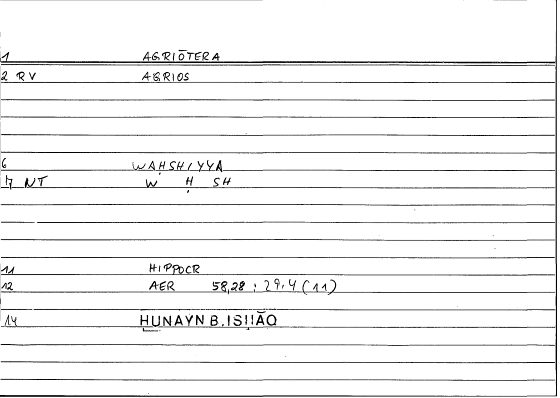 1 AGRIŌTERA
2 RV AGRIOS
6 WAḤSHIYYA
7 NT W Ḥ SH
11 HIPPOCR
12 AER 58,28 : 29,4 (11)
14 ḤUNAYN B. ISḤĀQ